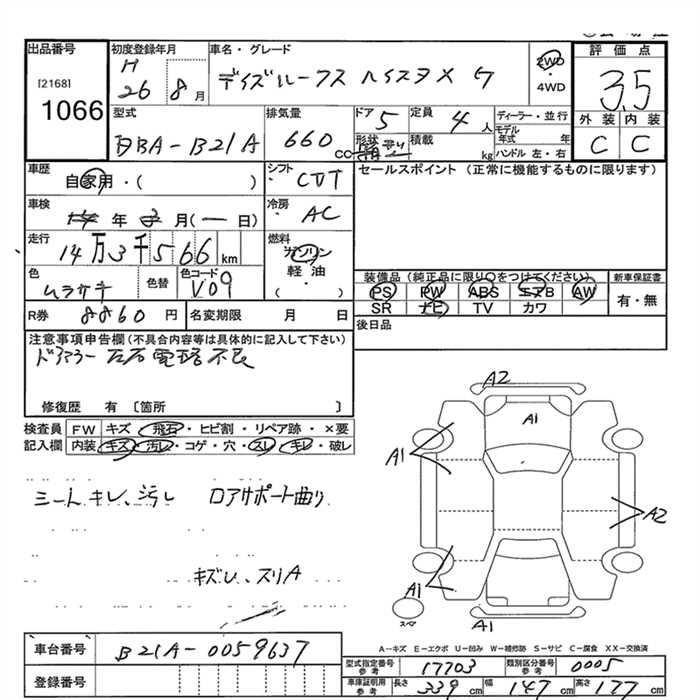 出品番号
[2168]
1066
初度登録年月
H
26 8 月
車名・グレード
デイズルークス ハイスタ X G
2WD
・
4WD
評価点
3.5
外装 内装
C C
型式
DBA-B21A
排気量
660
cc
ドア 5
形状
定員 4 人
積載
kg
ディーラー・並行
モデル年式 年
ハンドル 左・右
車歴
自家用・( )
シフト CVT
セールスポイント (正常に機能するものに限ります)
車検
年 月(一日)
冷房 AC
走行
14万3千566 km
燃料
ガソリン
軽油
・( )
色
ムラサキ
色替
色コード
V09
装備品(純正品に限り○をつけてください)
PS PW ABS エアB AW
SR ナビ TV カワ
新車保証書
有・無
R券 8860 円
名変期限 月 日
後日品
注意事項申告欄(不具合内容等は具体的に記入して下さい)
ドアミラー 左右 電格 不良
修復歴 有 〔箇所 〕
検査員 FW キズ・飛石・ヒビ割・リペア跡・×要
記入欄 内装 キズ・汚レ・コゲ・穴・スレ・キレ・破レ
シート キレ、汚レ ロアサポート曲り
キズU、スリA
A2
A1
A1
A2
A1
A1
スペア
A-キズ E-エクボ U-凹み W-補修跡 S-サビ C-腐食 XX-交換済
車台番号 B21A-0059637
登録番号
型式指定番号 参考 17703
類別区分番号 参考 0005
車庫証明用 参考 長さ 339 cm 幅 147 cm 高さ 177 cm